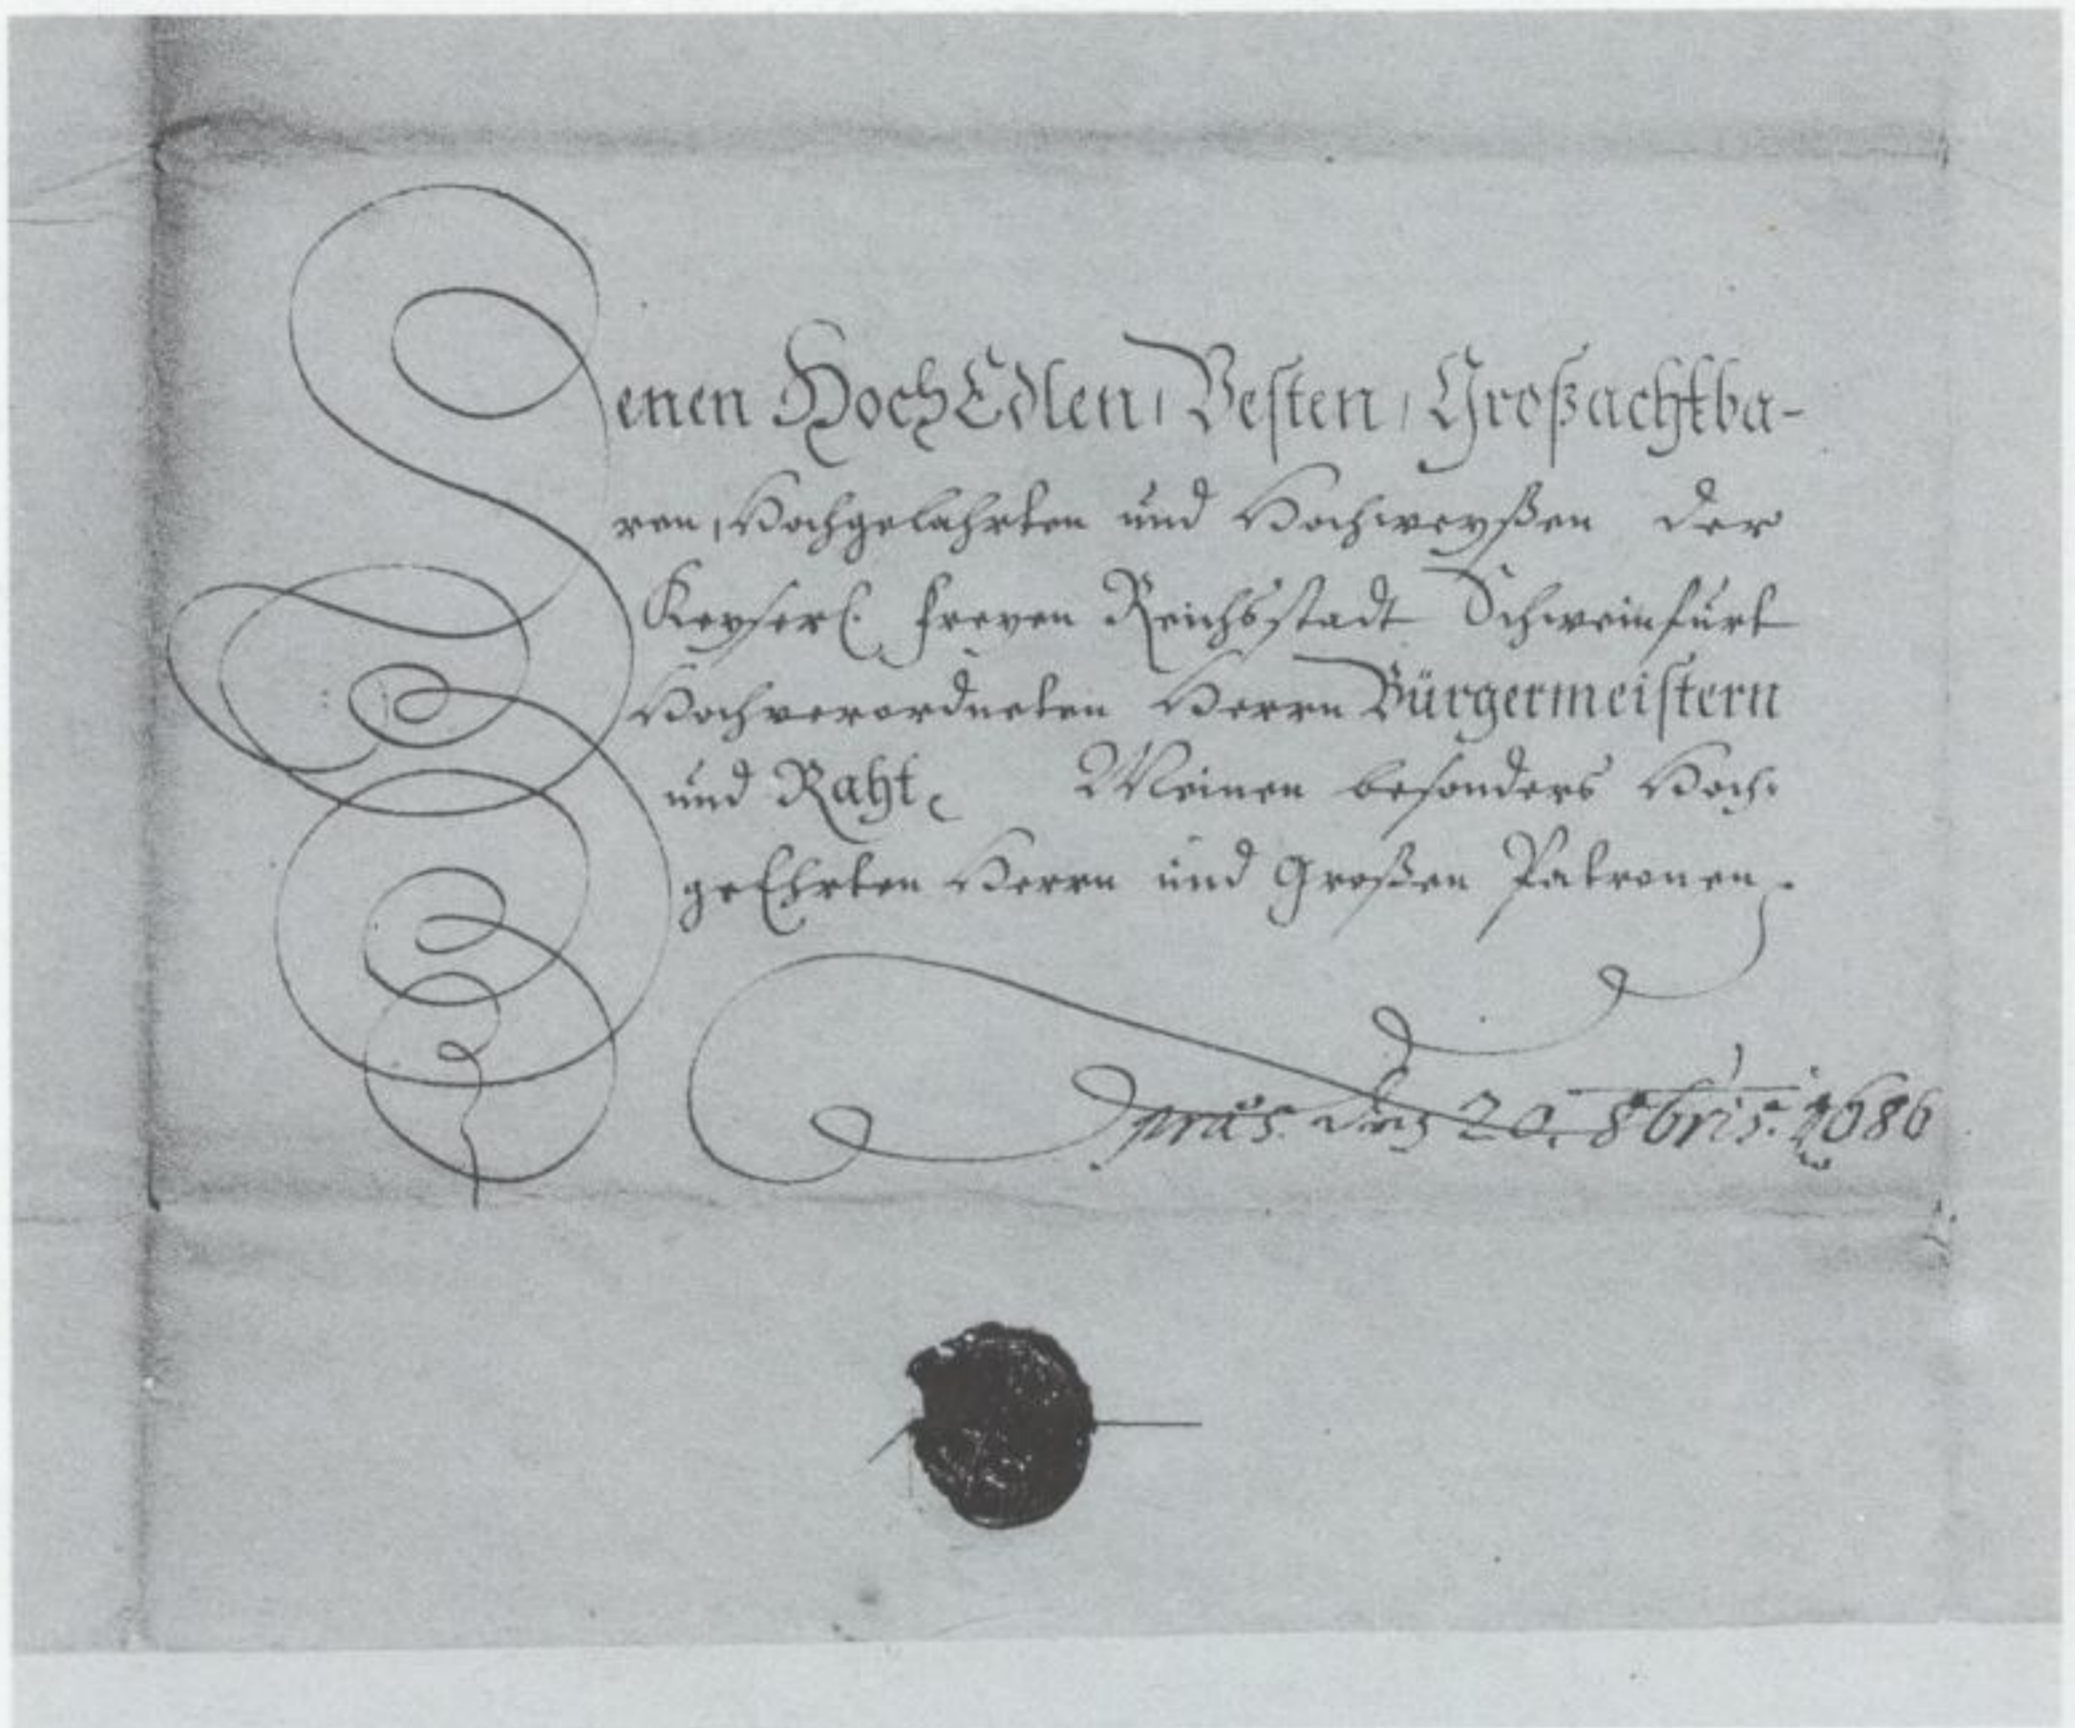 Denen HochEdlen, Vesten, Großachtba-
ren, Hochgelahrten und Hochweyßen der
Keyserl. freyen Reichsstadt Schweinfurt
Hochverordneten Herrn Bürgermeistern
und Raht, Meinen besonders Hoch-
geEhrten Herrn und Großen Patronen.
präs. den 20. 8bris. 1686